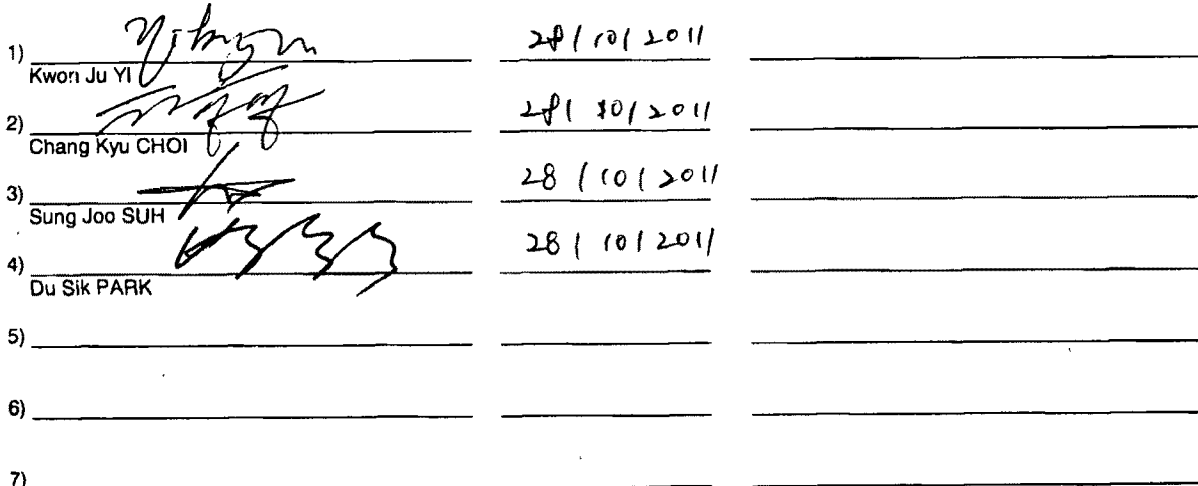 1) 28/10/2011
Kwon Ju YI
2) 28/10/2011
Chang Kyu CHOI
3) 28/10/2011
Sung Joo SUH
4) 28/10/2011
Du Sik PARK
5)
6)
7)